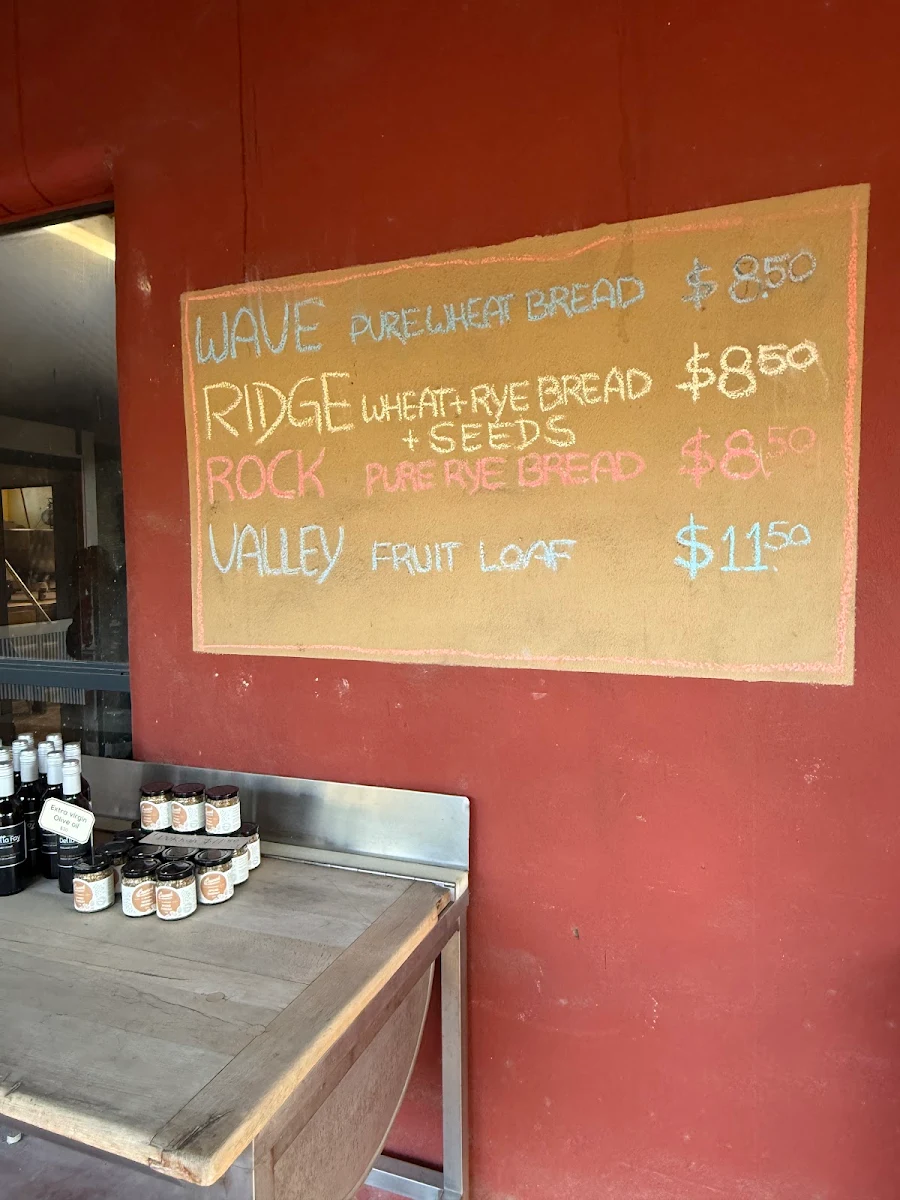 WAVE PURE WHEAT BREAD $8.50
RIDGE WHEAT+RYE BREAD $8.50
+ SEEDS
ROCK PURE RYE BREAD $8.50
VALLEY FRUIT LOAF $11.50
Extra virgin
Olive oil